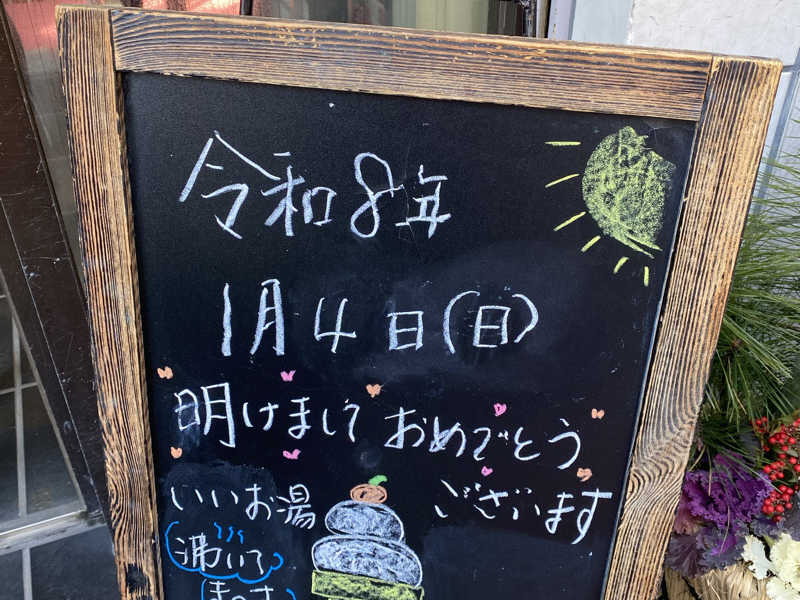 令和8年
1月4日(日)
明けまして おめでとう
ございます
いいお湯
沸いて